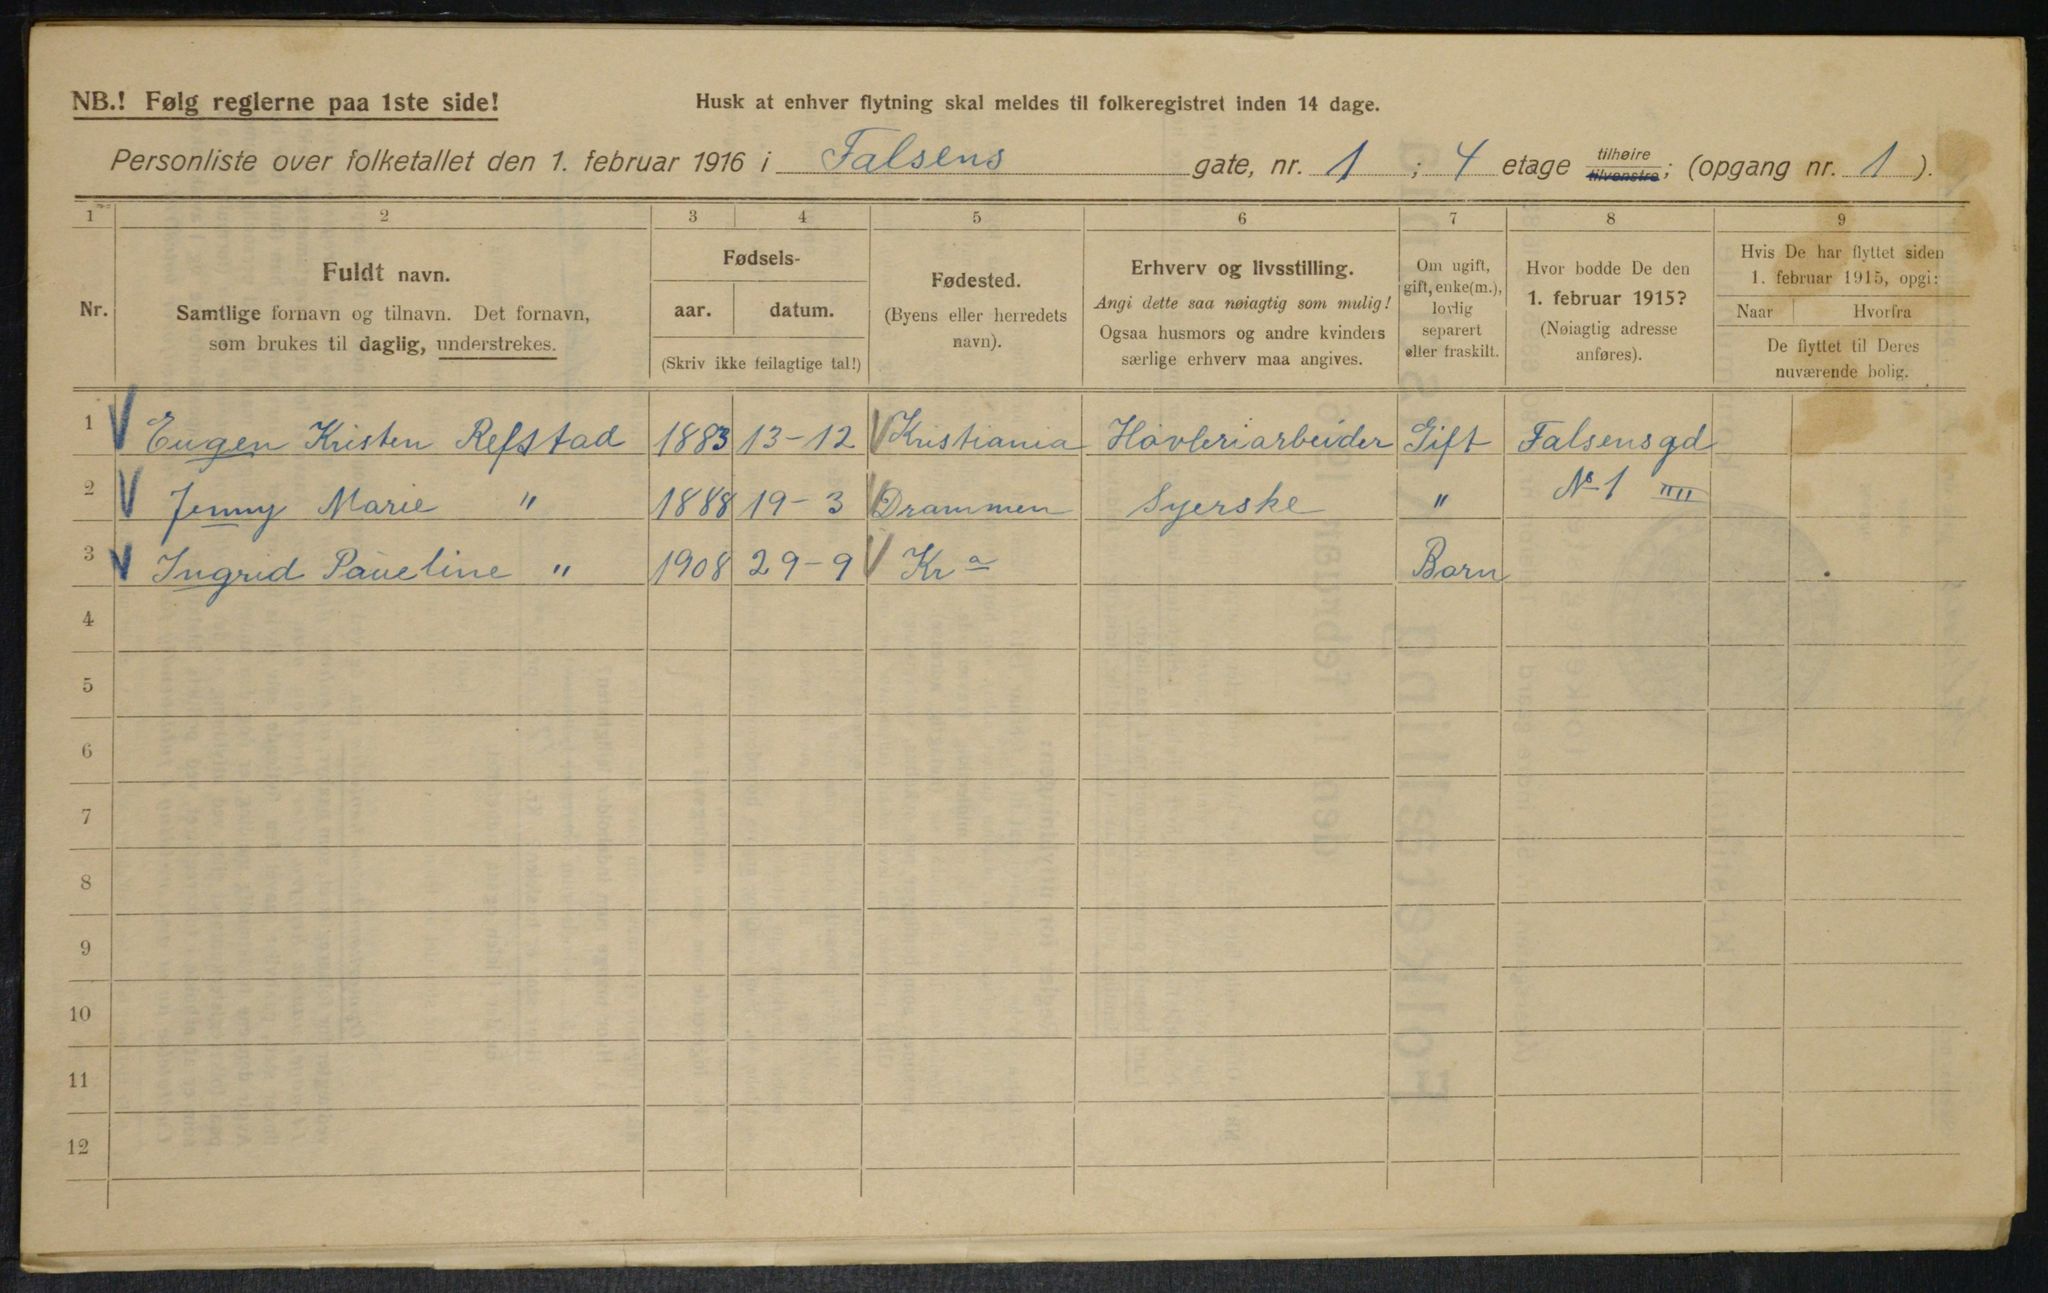 NB.! Følg reglerne paa 1ste side!
Husk at enhver flytning skal meldes til folkeregistret inden 14 dage.
Personliste over folketallet den 1. februar 1916 i Falsens gate, nr. 1 ; 4 etage tilhøire tilvenstre; (opgang nr. 1).
1 2 3 4 5 6 7 8 9
Nr.
Fuldt navn.
Samtlige fornavn og tilnavn. Det fornavn,
som brukes til daglig, understrekes.
Fødsels-
aar. datum.
(Skriv ikke feilagtige tal!)
Fødested.
(Byens eller herredets
navn).
Erhverv og livsstilling.
Angi dette saa nøiagtig som mulig!
Ogsaa husmors og andre kvinders
særlige erhverv maa angives.
Om ugift,
gift, enke(m.),
lovlig
separert
eller fraskilt.
Hvor bodde De den
1. februar 1915?
(Nøiagtig adresse
anføres).
Hvis De har flyttet siden
1. februar 1915, opgi:
Naar Hvorfra
De flyttet til Deres
nuværende bolig.
1 Eugen Kristen Refstad 1883 13-12 Kristiania Høvleriarbeider Gift Falsensgd
2 Jenny Marie " 1888 19-3 Drammen Syerske " No 1
3 Ingrid Paueline " 1908 29-9 Kra Barn
4
5
6
7
8
9
10
11
12